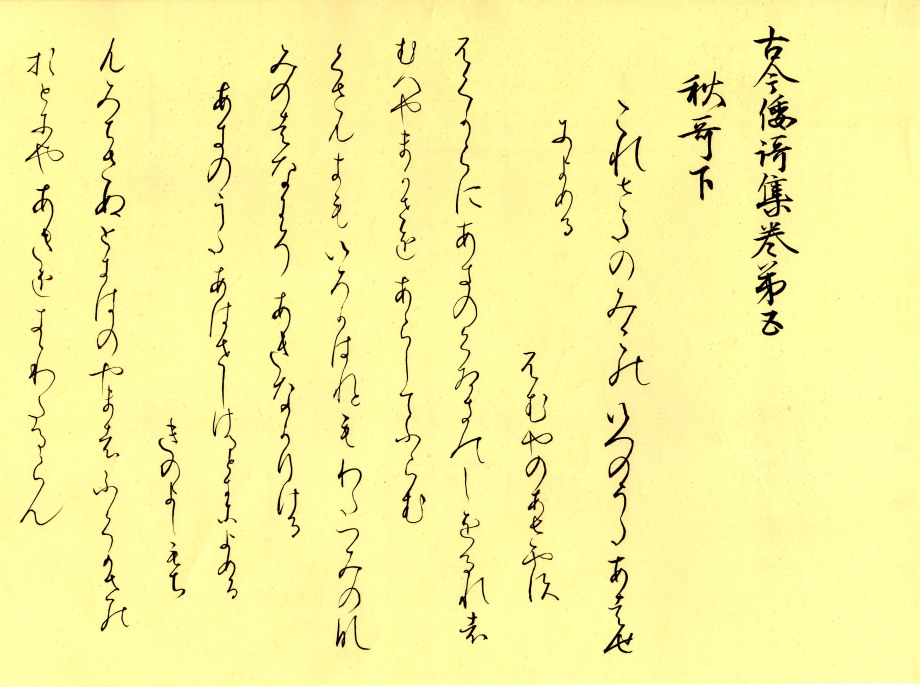 古今倭謌集巻第五
秋哥下
これさたのみこのいへのうたあはせ
によめる
ふむやのあさやす
ふくからにあきのくさきのしをるれは
むへやまかせをあらしてふらむ
くさもきもいろかはれともわたつみのな
みのはなにそあきなかりける
あきのうたあはせしけるときによめる
きのよしもち
もみちせぬときはのやまはふくかせの
おとにやあきをききわたるらん